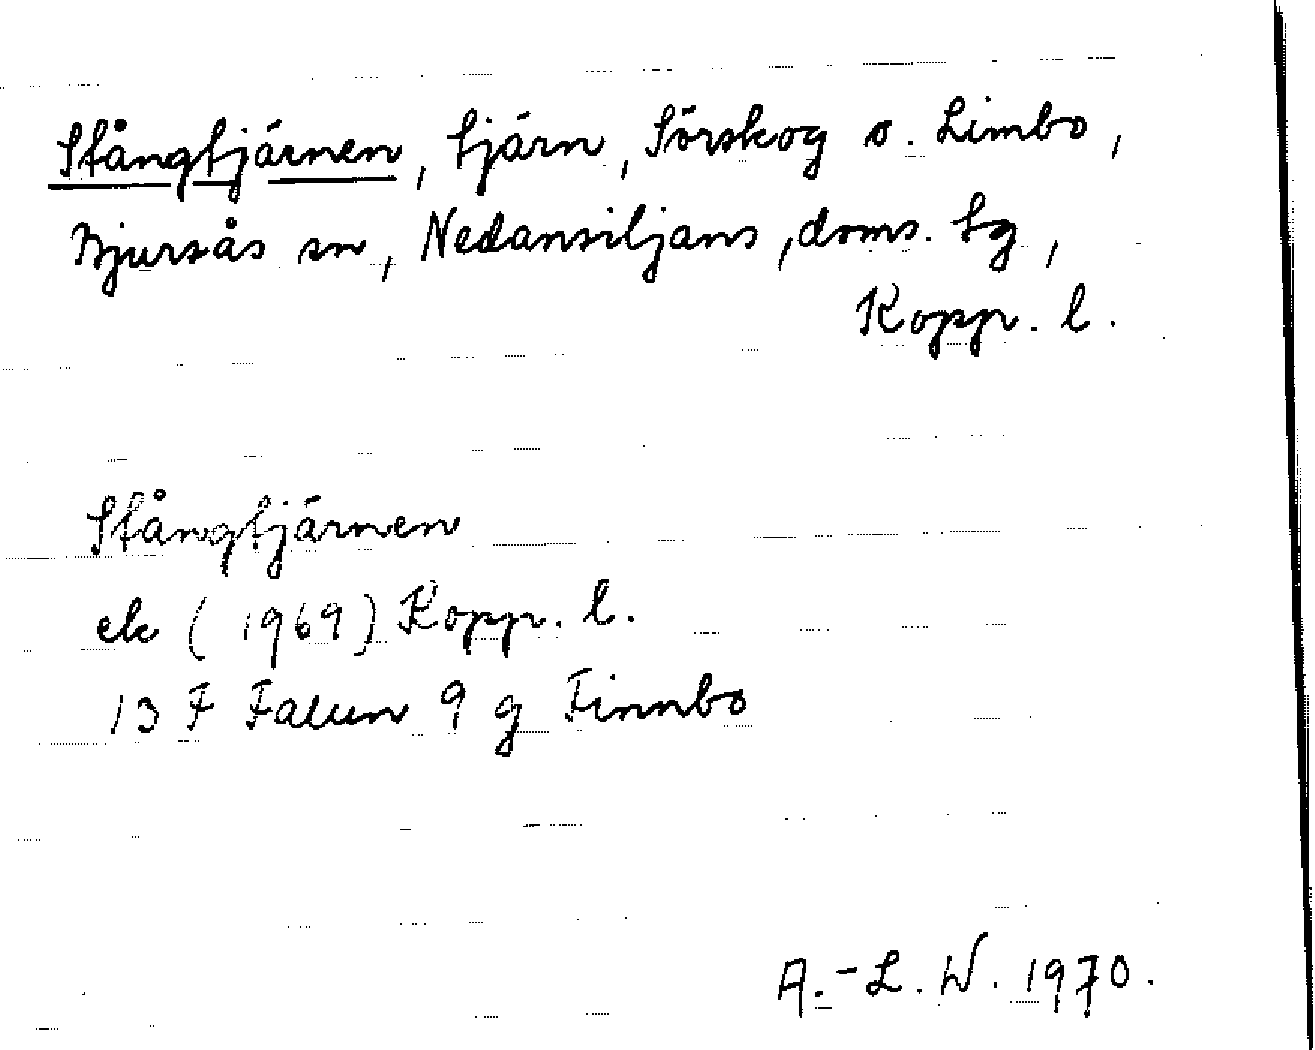 Stångtjärnen, tjärn, Sörskog o. Limbo,
Bjursås sn, Nedansiljans, doms. tg,
Kopp. l.
Stångtjärnen
ek (1969) Kopp. l.
13 F Falun 9 g Finnbo
A.-L. W. 1970.